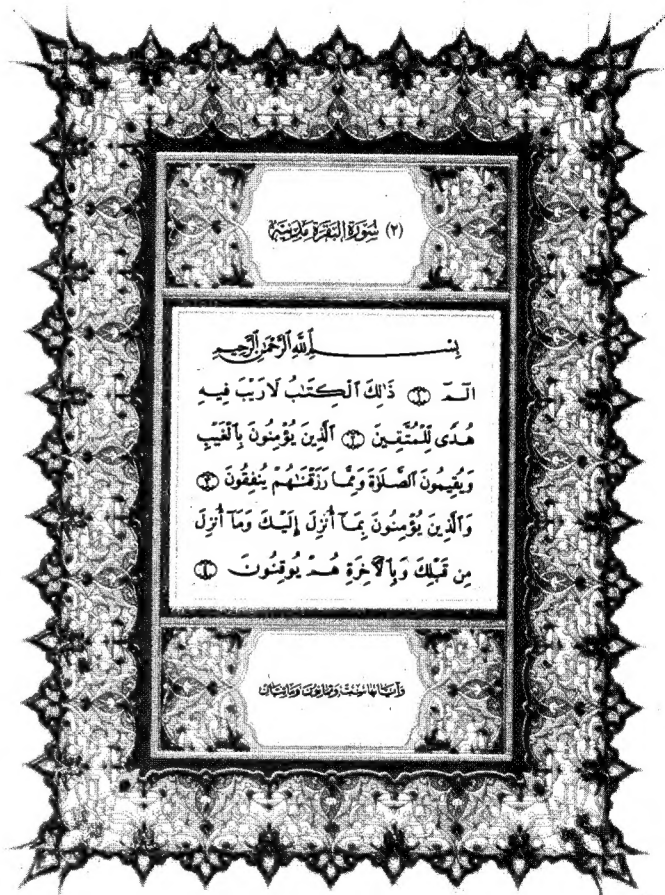 (٢) سُورَةُ البَقَرَةِ مَدَنِيَّة
بِسْمِ اللَّهِ الرَّحْمَٰنِ الرَّحِيمِ
الٓمٓ ۝١ ذَٰلِكَ ٱلْكِتَٰبُ لَا رَيْبَ فِيهِ
هُدًى لِّلْمُتَّقِينَ ۝٢ ٱلَّذِينَ يُؤْمِنُونَ بِٱلْغَيْبِ
وَيُقِيمُونَ ٱلصَّلَوٰةَ وَمِمَّا رَزَقْنَٰهُمْ يُنفِقُونَ ۝٣
وَٱلَّذِينَ يُؤْمِنُونَ بِمَآ أُنزِلَ إِلَيْكَ وَمَآ أُنزِلَ
مِن قَبْلِكَ وَبِٱلْأَخِرَةِ هُمْ يُوقِنُونَ ۝٤
وآياتها ست وثمانون ومائتان